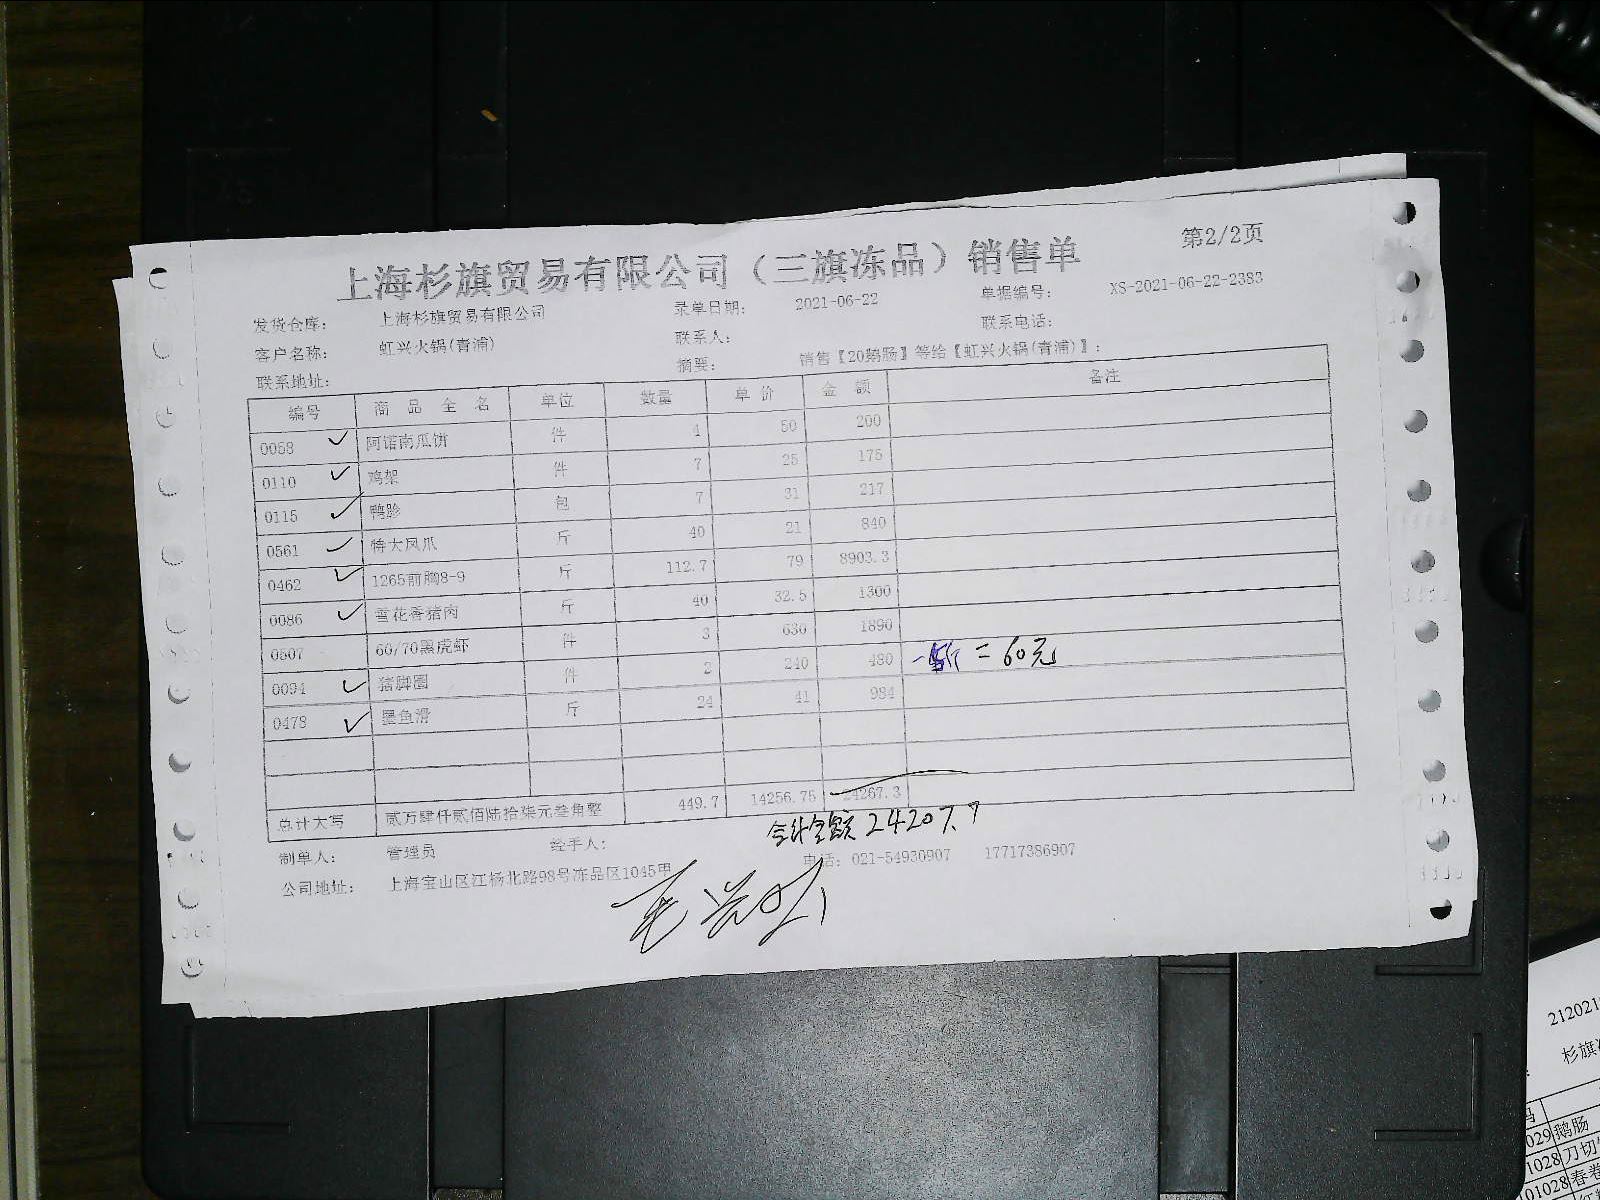 第2/2页
上海杉旗贸易有限公司（三旗冻品）销售单
发货仓库： 上海杉旗贸易有限公司 录单日期： 2021-06-22 单据编号： XS-2021-06-22-2383
客户名称： 虹兴火锅(青浦) 联系人： 联系电话：
联系地址： 摘要： 销售【20鹅肠】等给【虹兴火锅(青浦)】：
编号 商品全名 单位 数量 单价 金额 备注
0058 阿诺南瓜饼 件 4 50 200
0110 鸡架 件 7 25 175
0115 鸭胗 包 7 31 217
0561 特大凤爪 斤 40 21 840
0462 1265前胸8-9 斤 112.7 79 8903.3
0086 雪花香猪肉 斤 40 32.5 1300
0507 60/70黑虎虾 件 3 630 1890
0094 猪脚圈 件 2 240 480 = 60元
0473 墨鱼滑 斤 24 41 984
总计大写 贰万肆仟贰佰陆拾柒元叁角整 449.7 14256.75 24267.3
合计金额 24207.7
制单人： 管理员 经手人： 电话：021-54930907 17717386907
公司地址： 上海宝山区江杨北路98号冻品区1045甲
212021
杉旗
码
029 鹅肠
1028 刀切
01028 春卷